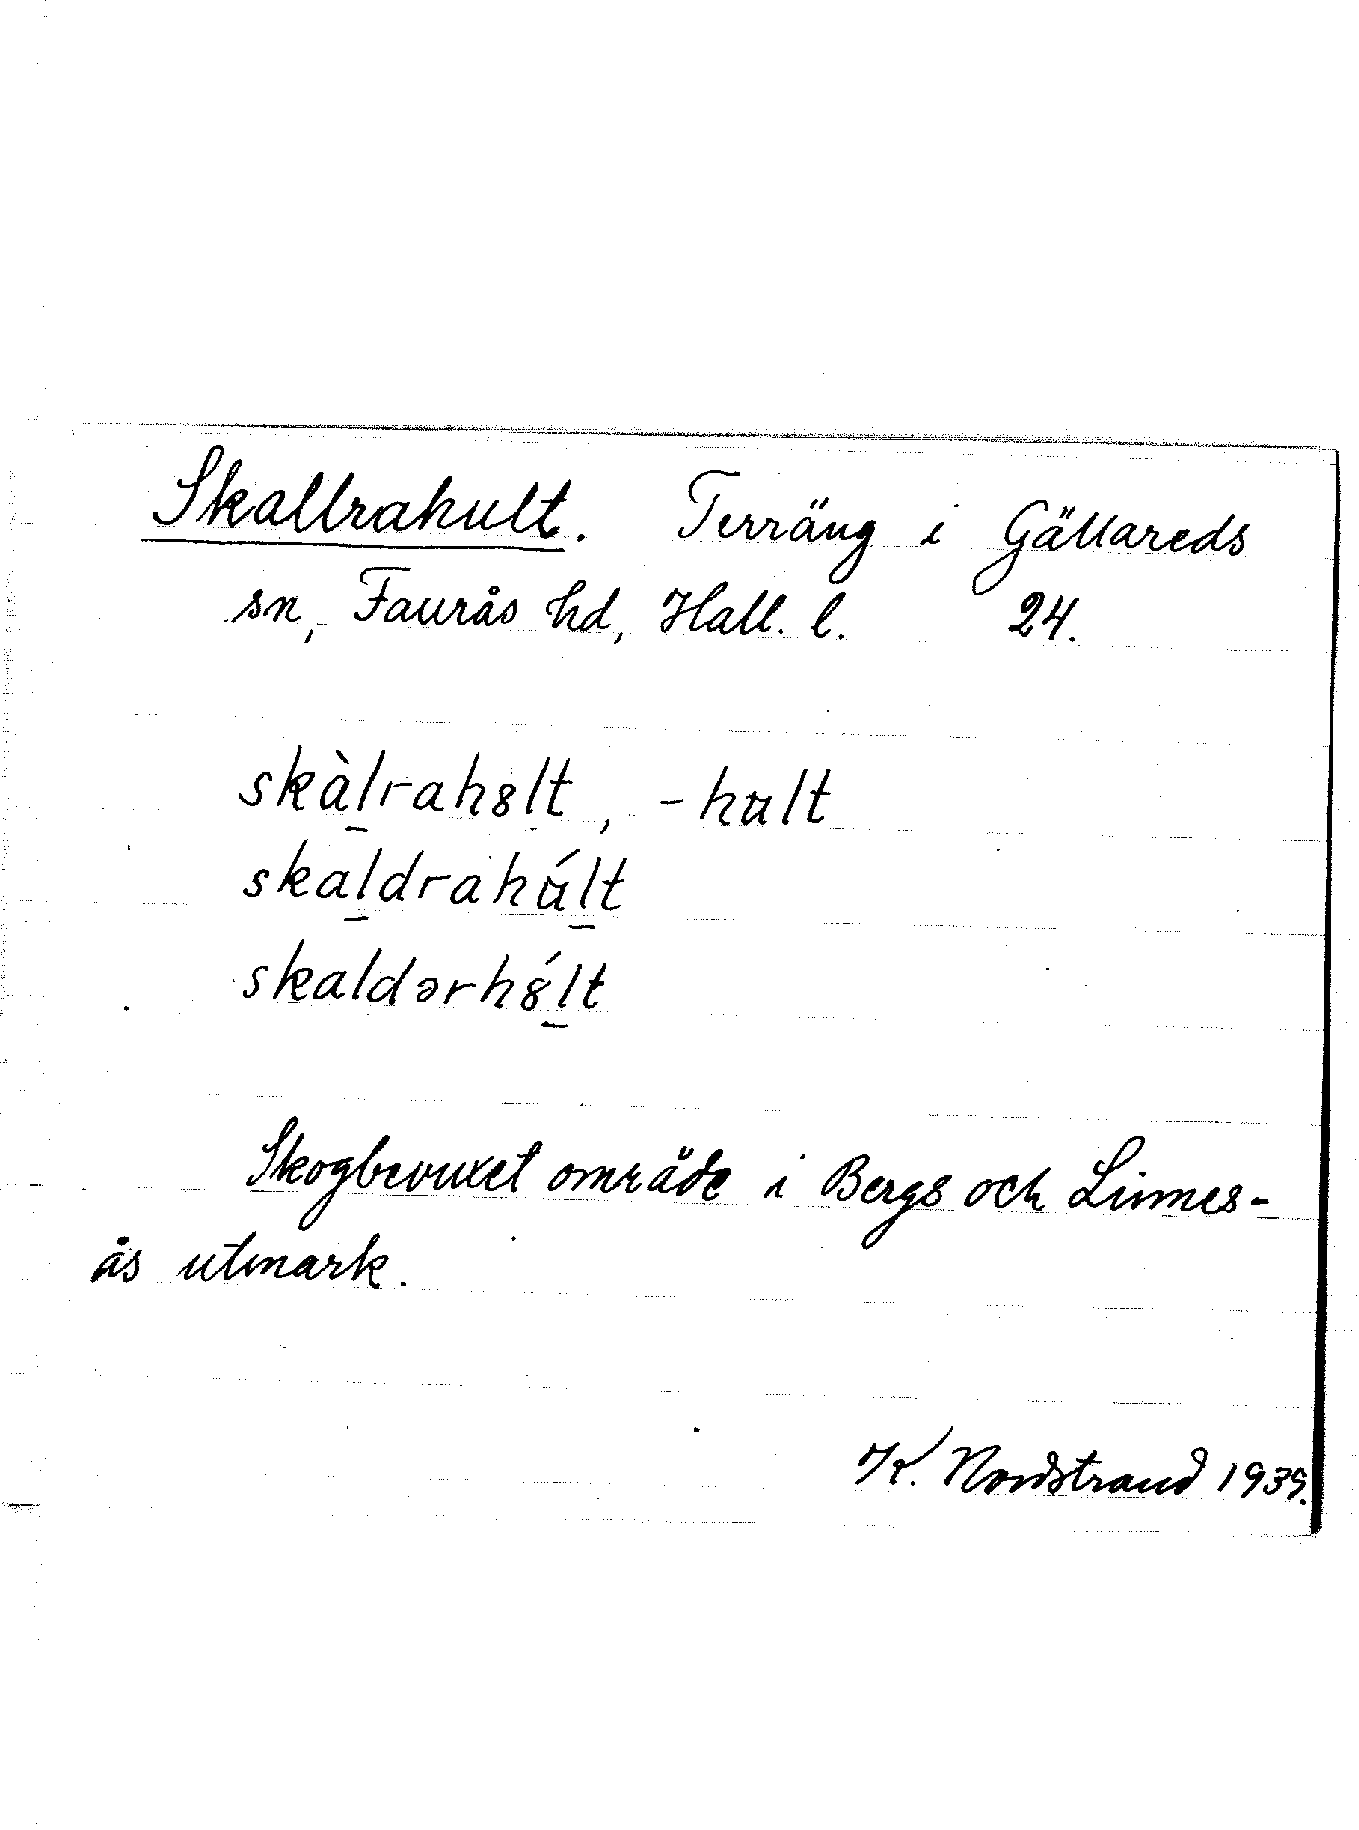 Skallrahult. Terräng i Gällareds
sn, Faurås hd, Hall. l. 24.
skàl̠rah8lt, -hult
skal̠drahúl̠t
skaldərh8́l̠t
Skogbevuxet område i Bergs och Linnes-
ås utmark.
K. Nordstrand 1939.